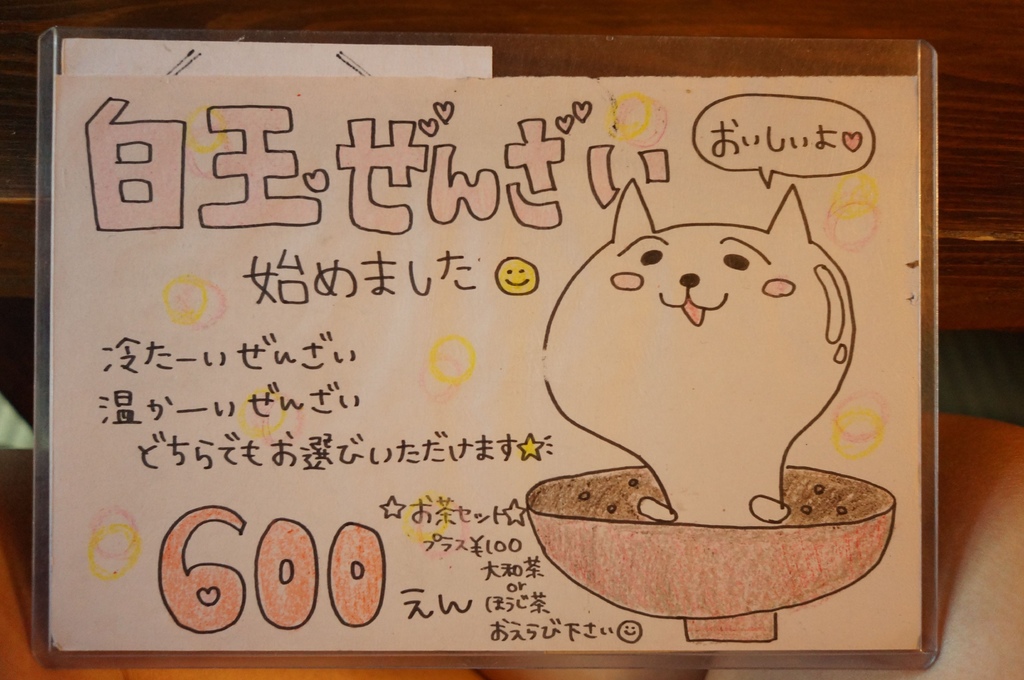 白玉ぜんざい
おいしいよ♥
始めました
冷たーいぜんざい
温かーいぜんざい
どちらでもお選びいただけます☆
600えん
☆お茶セット☆
プラス¥100
大和茶
or
ほうじ茶
おえらび下さい